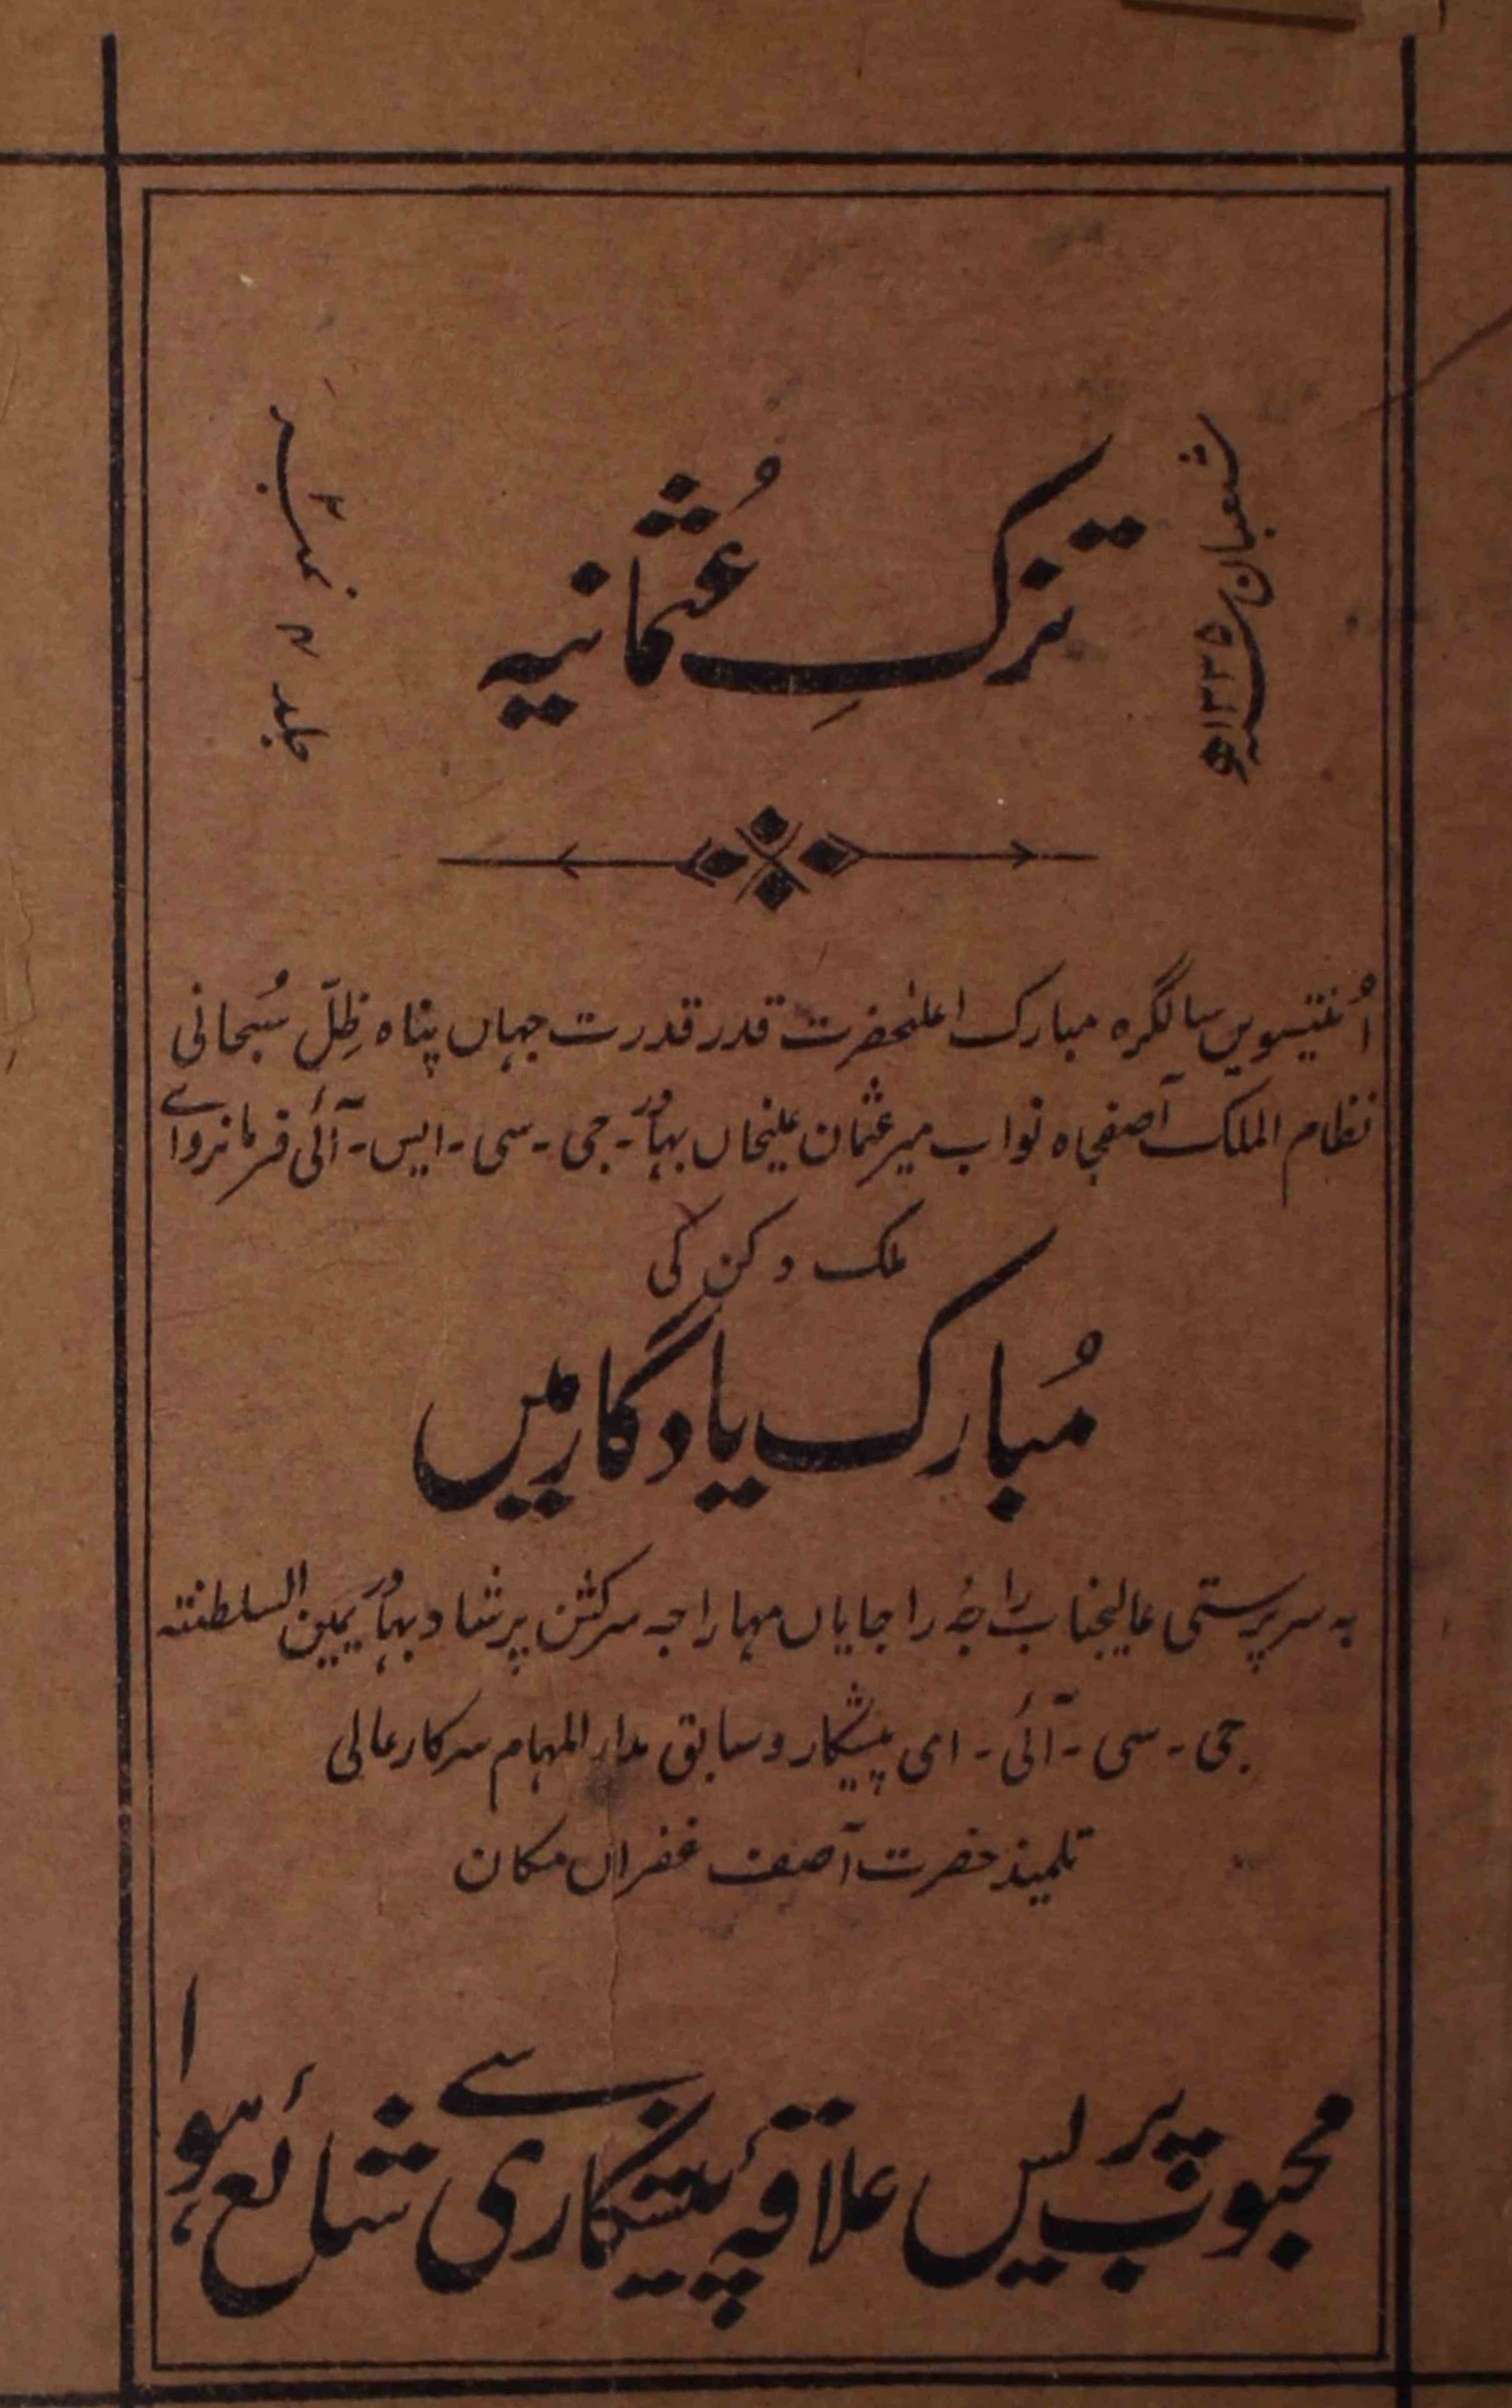 شعبان سنہ ۱۳۳۵ھ
تزکِ عُثمانیہ
جلد ۳ نمبر ۲
اُنتیسویں سالگرہ مبارک اعلیٰحضرت قدر قدرت جہاں پناہ ظِلّ سُبحانی
نظام الملک آصفجاہ نواب میر عثمان علیخاں بہادر ۔ جی ۔ سی ۔ ایس ۔ آئی فرمانروائے
ملک دکن کی
مُبارک یادگار میں
بہ سرپرستی عالیجناب راجۂ راجایاں مہاراجہ سرکشن پرشاد بہادر یمین السلطنتہ
جی ۔ سی ۔ آئی ۔ ای پیشکار و سابق مدار المہام سرکار عالی
تلمیذ حضرت آصف غفراں مکان
محبوب پریس علاقۂ پیشکاری سے شائع ہوا